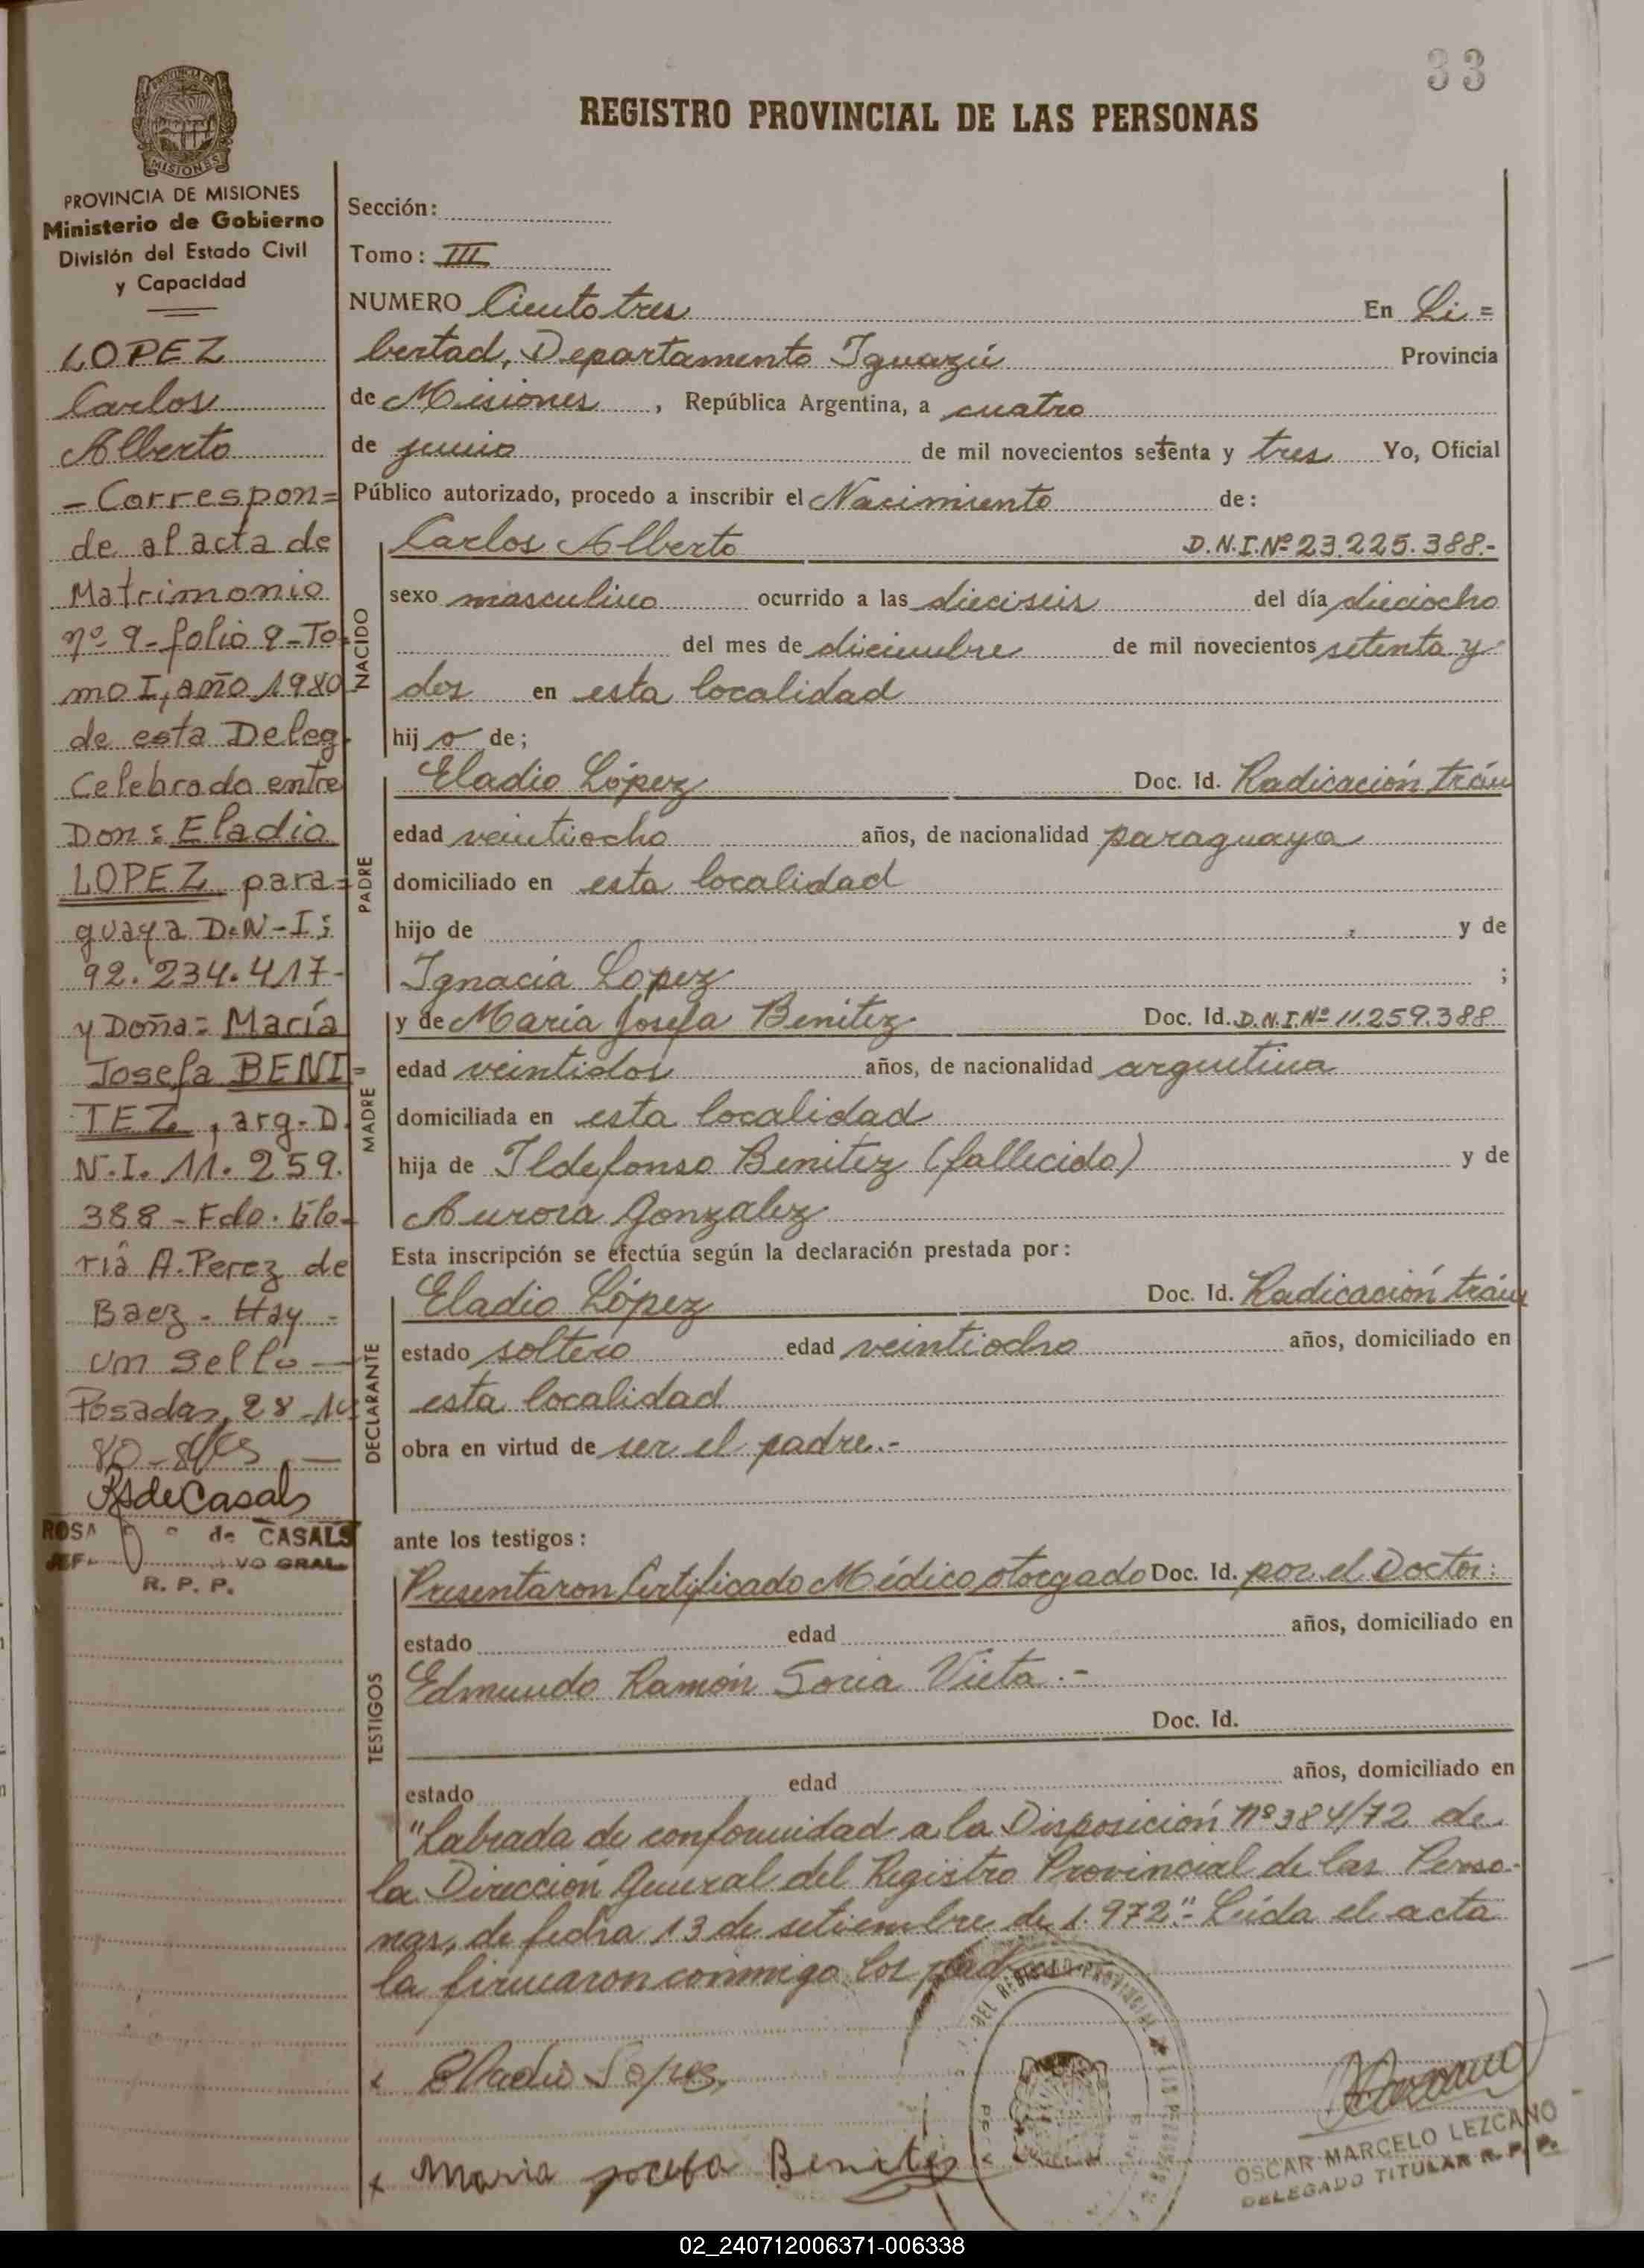 33
REGISTRO PROVINCIAL DE LAS PERSONAS
PROVINCIA DE MISIONES
Ministerio de Gobierno
División del Estado Civil
y Capacidad
LOPEZ
Carlos
Alberto
- Correspon=
de al acta de
Matrimonio
nº 9 - folio 9 - To-
mo I, año 1980
de esta Deleg.
Celebrado entre
Don: Eladio
LOPEZ para=
guaya D.N-I:
92.234.417-
y Doña: María
Josefa BENI=
TEZ, arg- D.
N.I. 11.259.
388 - Fdo. Glo-
ria A. Perez de
Baez - Hay -
un sello -
Posadas, 28-10
80-
RAdeCasals
ROSA de CASALS
VO GRAL
R. P. P.
Sección:
Tomo: III
NUMERO Ciento tres En Li=
bertad, Departamento Iguazú Provincia
de Misiones, República Argentina, a cuatro
de junio de mil novecientos setenta y tres Yo, Oficial
Público autorizado, procedo a inscribir el Nacimiento de:
NACIDO
Carlos Alberto D.N.I.Nº 23.225.388.-
sexo masculino ocurrido a las dieciseis del día dieciocho
del mes de diciembre de mil novecientos setenta y
dos en esta localidad
hijo de;
PADRE
Eladio López Doc. Id. Radicación trám
edad veintiocho años, de nacionalidad paraguaya
domiciliado en esta localidad
hijo de y de
Ignacia Lopez ;
MADRE
y de María Josefa Benitez Doc. Id. D.N.I.Nº 11.259.388
edad veintidos años, de nacionalidad argentina
domiciliada en esta localidad
hija de Ildefonso Benitez (fallecido) y de
Aurora Gonzalez
Esta inscripción se efectúa según la declaración prestada por:
DECLARANTE
Eladio López Doc. Id. Radicación trám
estado soltero edad veintiocho años, domiciliado en
esta localidad
obra en virtud de ser el padre.-
ante los testigos:
TESTIGOS
Presentaron Certificado Médico otorgado Doc. Id. por el Doctor:
estado edad años, domiciliado en
Edmundo Ramón Soria Vieta.-
Doc. Id.
estado edad años, domiciliado en
"Labrada de conformidad a la Disposición nº 384/72 de
la Dirección General del Registro Provincial de las Perso-
nas, de fecha 13 de setiembre de 1.972".- Leída el acta
la firmaron conmigo los padres
DEL REGISTRO PROVINCIAL
x Eladio Lopez
x Maria Josefa Benitez
OSCAR MARCELO LEZCANO
DELEGADO TITULAR R. P. P.
02_240712006371-006338